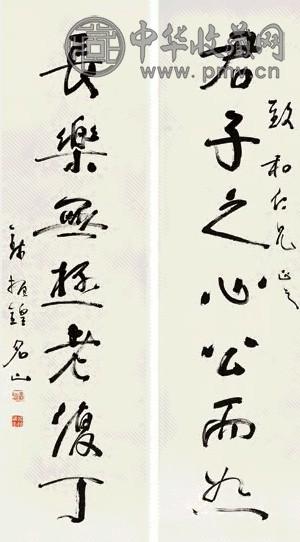 中华收藏网
致和仁兄正之
君子之心公而恕
長樂無極老復丁
錢振鍠名山